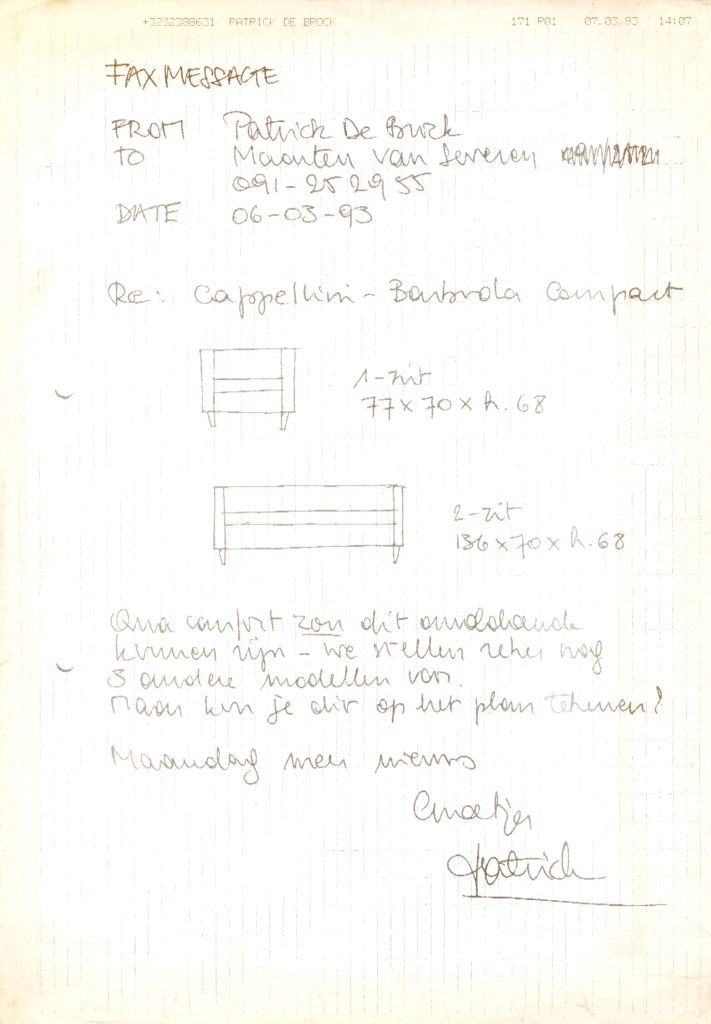 +3232388631 PATRICK DE BROCK 171 P01 07.03.93 14:07
FAX MESSAGE
FROM Patrick De Brock
TO Maarten van Severen
091-25 29 55
DATE 06-03-93
Re: Cappellini - Barbrola Compact
1-zit
77 x 70 x h. 68
2-zit
136 x 70 x h. 68
Qua comfort zou dit
kunnen zijn - we stellen zeker nog
3 andere modellen voor.
Maar kun je dit op het plan tekenen?
Maandag meer nieuws
Groetjes
Patrick